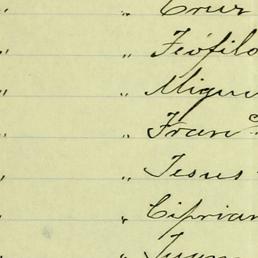 " " Cruz
" " Teófilo
" " Migue
" " Franco
" " Jesus
" " Ciprian
" " Juan